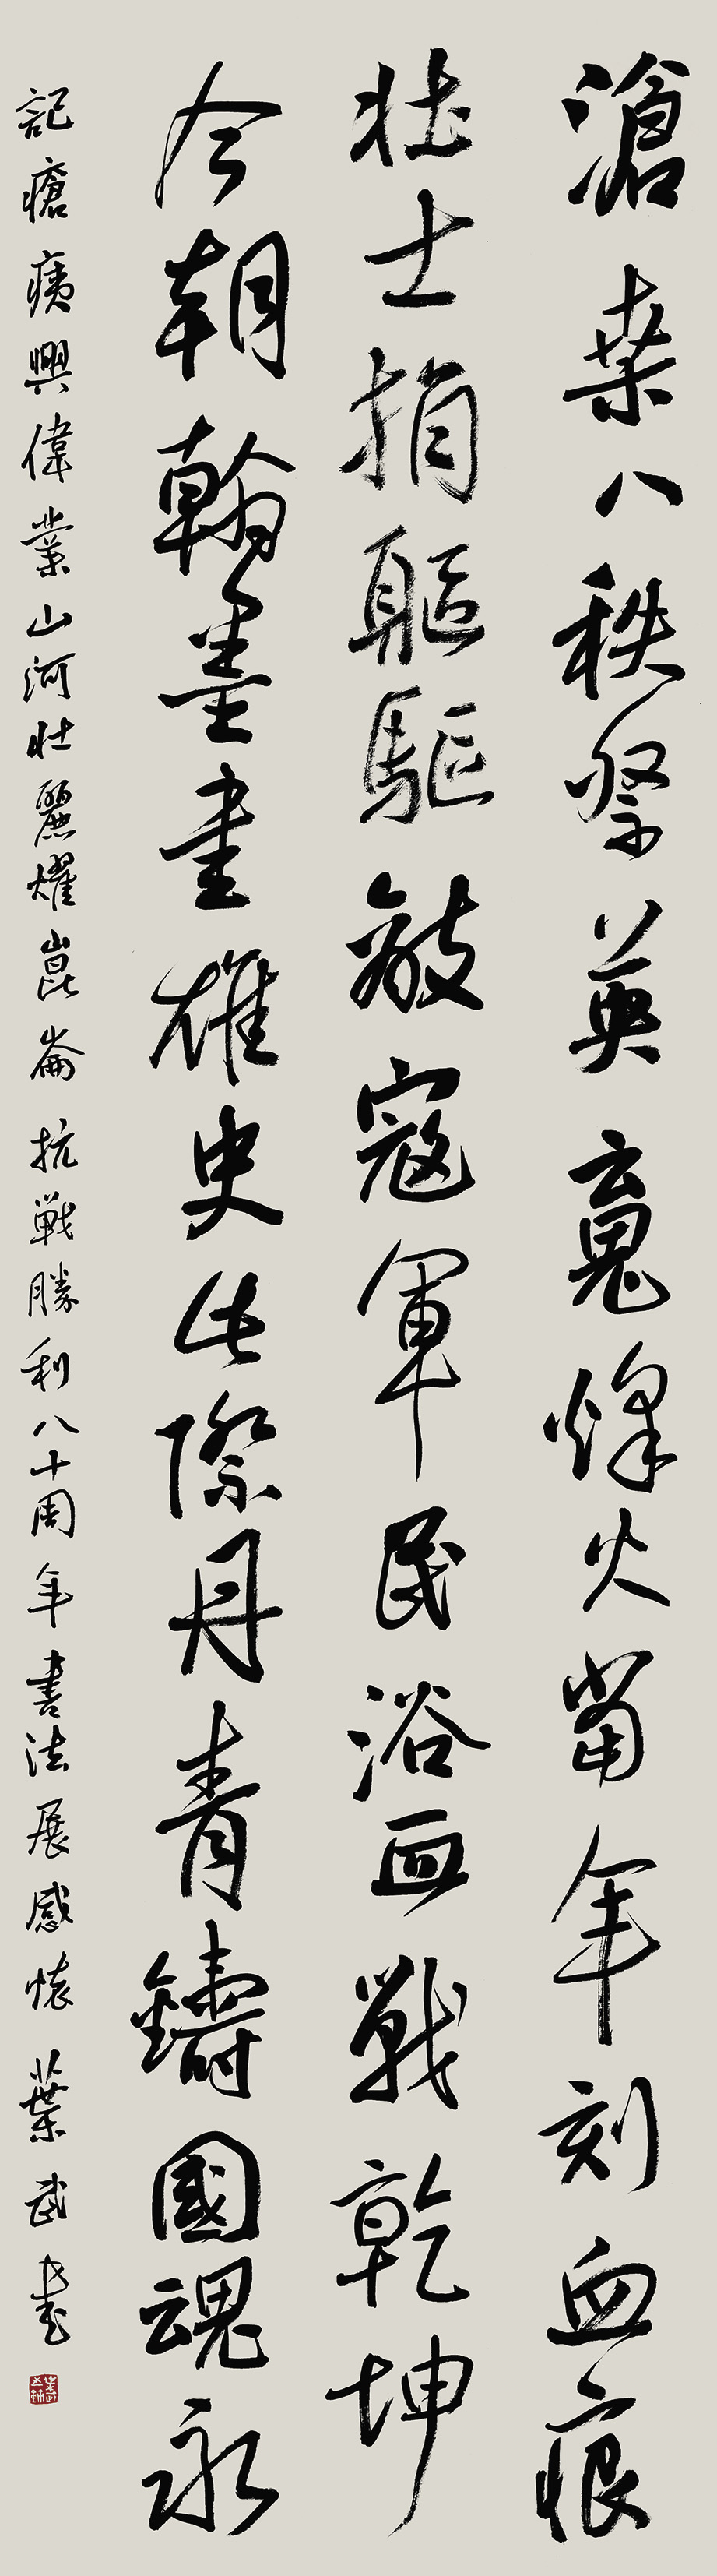 滄桑八秩祭英魂烽火當年刻血痕
壯士捐軀驅敵寇軍民浴血戰乾坤
今朝翰墨書雄史此際丹青鑄國魂永
記瘡痍興偉業山河壯麗耀崑崙 抗戰勝利八十周年書法展感懷 葉武書